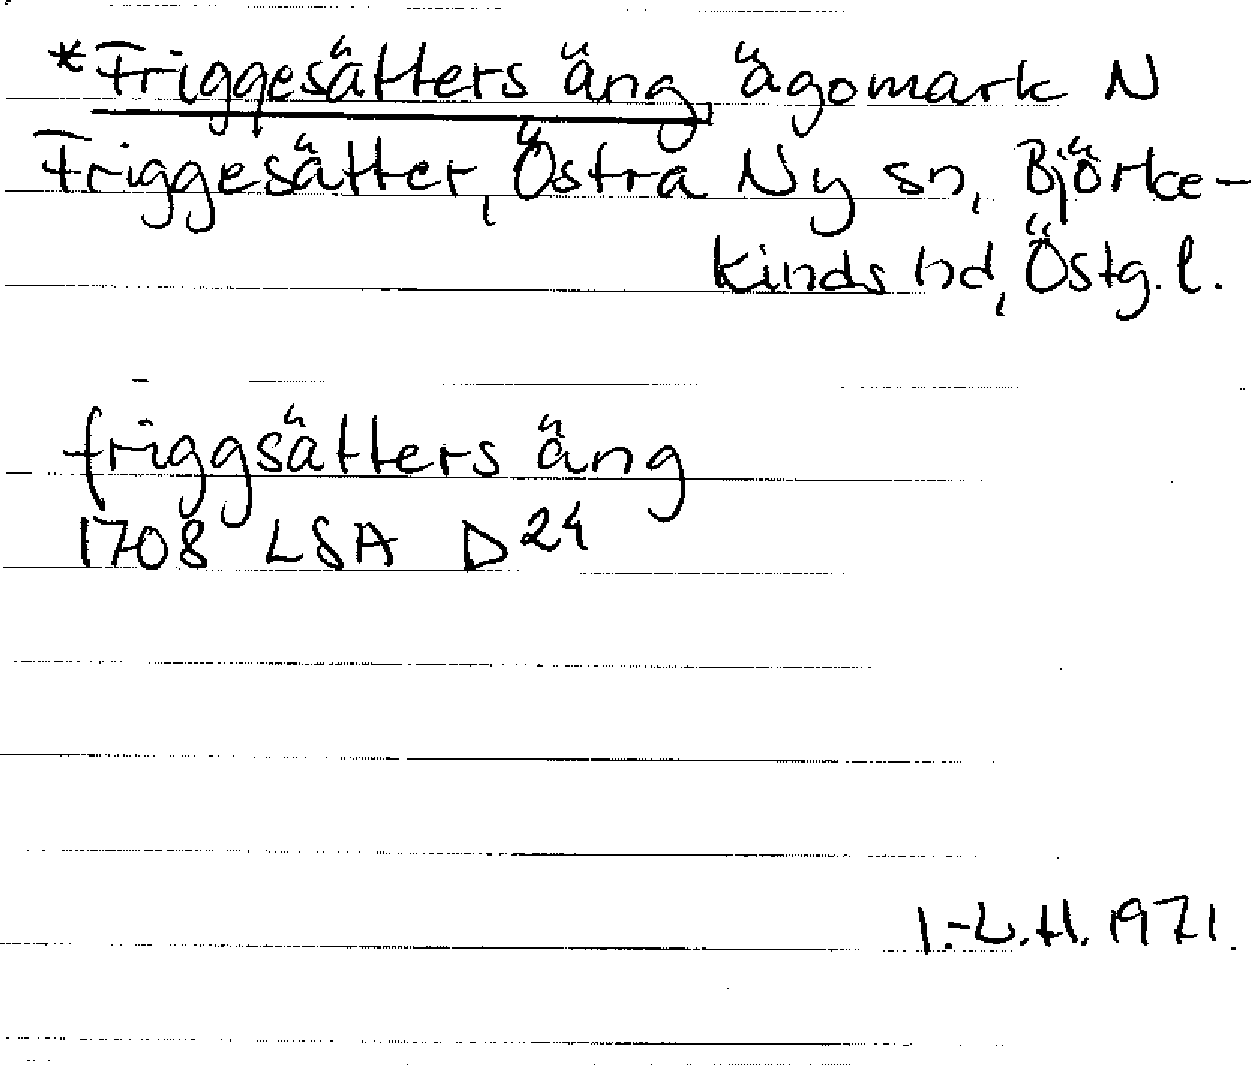 *Friggesätters äng, ägomark N
Friggesätter, Östra Ny sn, Björke-
kinds hd, Östg. l.
friggsätters äng
1708 LSA D24
I.-L.H. 1971.